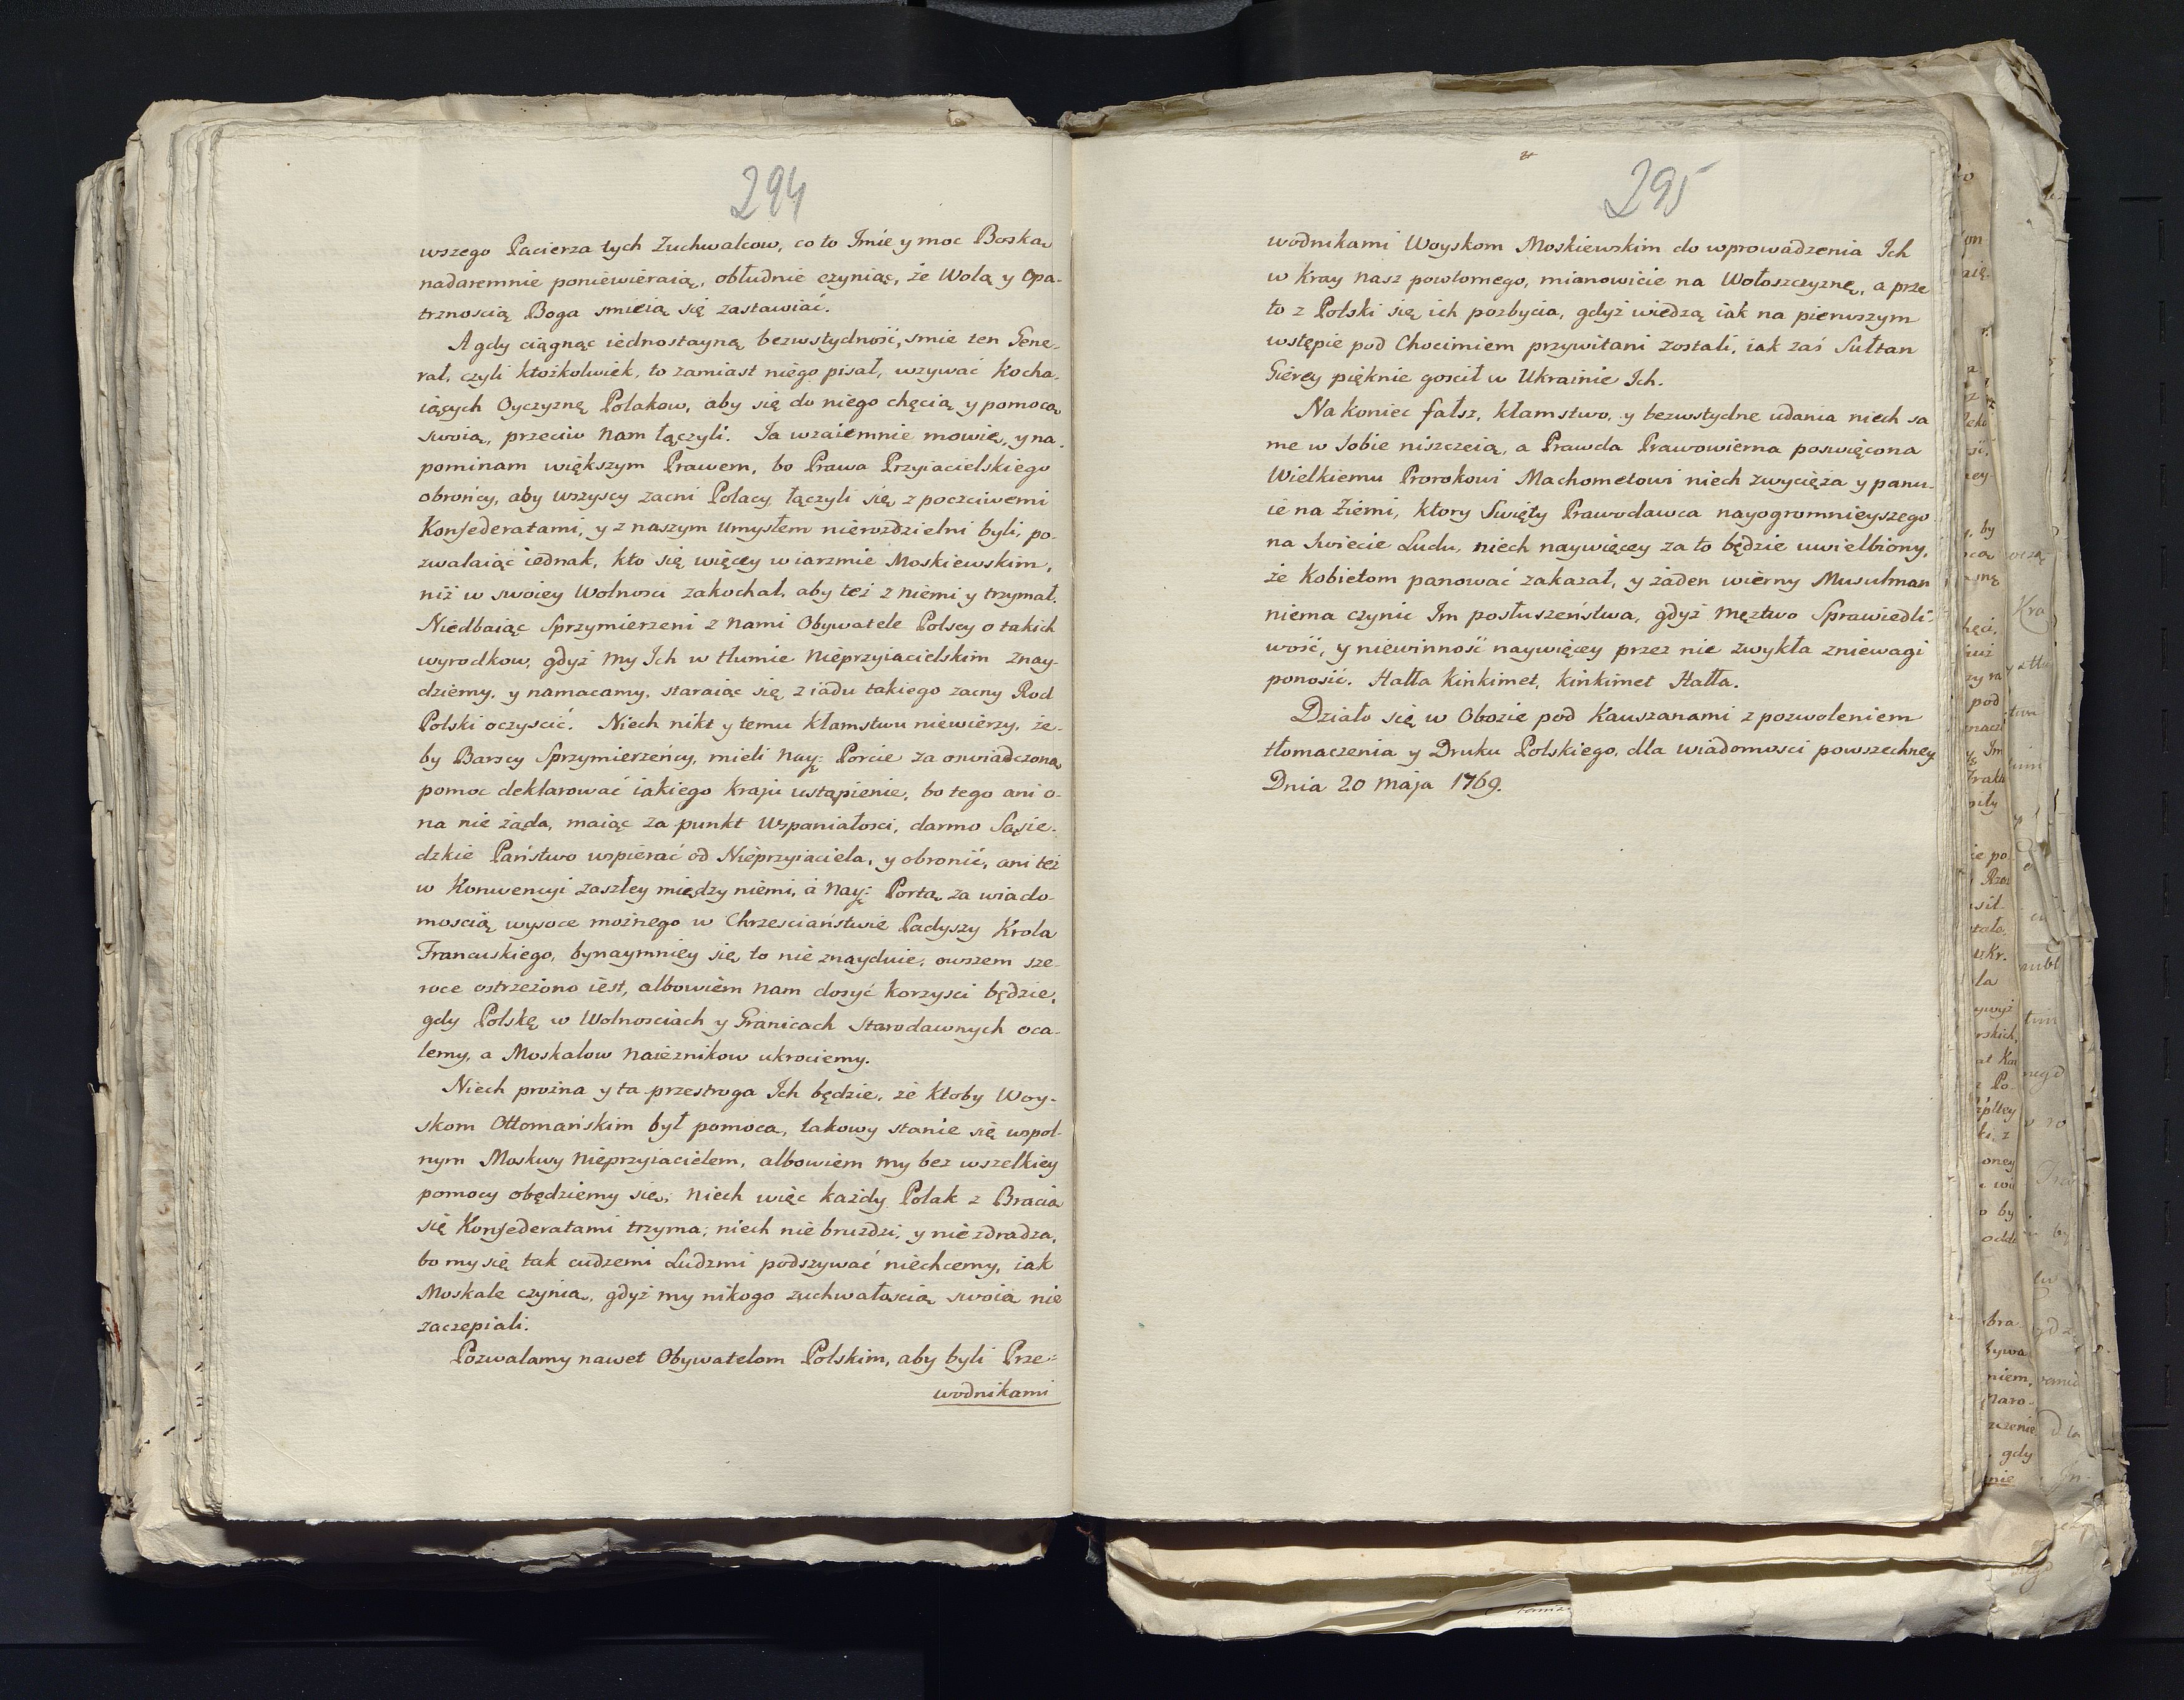 294
wszego Pacierza tych Zuchwalcow, co to Imie y moc Boską
nadaremnie poniewieraią, obłudnie czyniąc, że Wolą y Opa-
trznoscią Boga smieią się zastawiać.
A gdy ciągnąc iednostayną bezwstydność, smie ten Gene-
rał, czyli ktożkolwiek, to zamiast niego pisał, wzywać Kocha-
iących Oyczyznę Polakow, aby się do niego chęcią y pomocą
swoią, przeciw nam łączyli. Ja wzaiemnie mowię, y na-
pominam większym Prawem, bo Prawa Przyiacielskiego
obrońcy, aby wszyscy zacni Polacy łączyli się z poczciwemi
Konfederatami, y z naszym Umysłem nierozdzielni byli, po-
zwalaiąc iednak, kto się więcey w iarzmie Moskiewskim,
niż w swoiey Wolnosci zakochał, aby też z niemi y trzymał.
Niedbaiąc Sprzymierzeni z nami Obywatele Polscy o takich
wyrodkow, gdyż my Ich w tłumie Nieprzyiacielskim znay-
dziemy, y namacamy, staraiąc się z iadu takiego zacny Rod
Polski oczyscić. Niech nikt y temu kłamstwu niewierzy, że-
by Barscy Sprzymierzeńcy, mieli Nay: Porcie za oswiadczoną
pomoc deklarować iakiego kraju ustąpienie, bo tego ani o-
na nie żąda, maiąc za punkt Wspaniałosci, darmo Sąsie-
dzkie Państwo wspierać od Nieprzyiaciela, y obronić, ani też
w Konwencyi zaszłey między niemi, a Nay: Portą za wiado-
moscią wysoce możnego w Chrzesciaństwie Padyszy Krola
Francuskiego, bynaymniey się to nie znayduie, owszem sze-
roce ostrzeżono iest, albowiem nam dosyć korzysci będzie,
gdy Polskę w Wolnosciach y Granicach Starodawnych oca-
lemy, a Moskalow naieznikow ukrociemy.
Niech prożna y ta przestroga Ich będzie, że ktoby Woy-
skom Ottomańskim był pomocą, takowy stanie się wspol-
nym Moskwy Nieprzyiacielem, albowiem my bez wszelkiey
pomocy obędziemy się, niech więc każdy Polak z Bracią
się Konfederatami trzyma, niech nie bruzdzi, y nie zdradza,
bo my się tak cudzemi Ludzmi podszywać niechcemy, iak
Moskale czynią, gdyż my nikogo zuchwałoscią swoią nie
zaczepiali.
Pozwalamy nawet Obywatelom Polskim, aby byli Prze-
wodnikami
295
wodnikami Woyskom Moskiewskim do wprowadzenia Ich
w Kray nasz powtornego, mianowicie na Wołoszczyznę, a prze
to z Polski się ich pozbycia, gdyż wiedzą iak na pierwszym
wstępie pod Chocimiem przywitani zostali, iak zaś Sułtan
Gierey pięknie goscił w Ukrainie Ich.
Na koniec fałsz, kłamstwo, y bezwstydne udania niech sa
me w Sobie niszczeią, a Prawda Prawowierna poswięcona
Wielkiemu Prorokowi Machometowi niech zwycięża y panu-
ie na Ziemi, ktory Swięty Prawodawca nayogromnieyszego
na Swiecie Ludu, niech naywięcey za to będzie uwielbiony,
że Kobietom panować zakazał, y żaden wierny Musulman
niema czynic Im posłuszeństwa, gdyż męztwo Sprawiedli-
wość, y niewinność naywięcey przez nie zwykła zniewagi
ponosić. Hałła Kinkimet, kinkimet Hałła.
Działo się w Obozie pod Kauszanami z pozwoleniem
tłomaczenia y Druku Polskiego, dla wiadomosci powszechney
Dnia 20 Maja 1769.